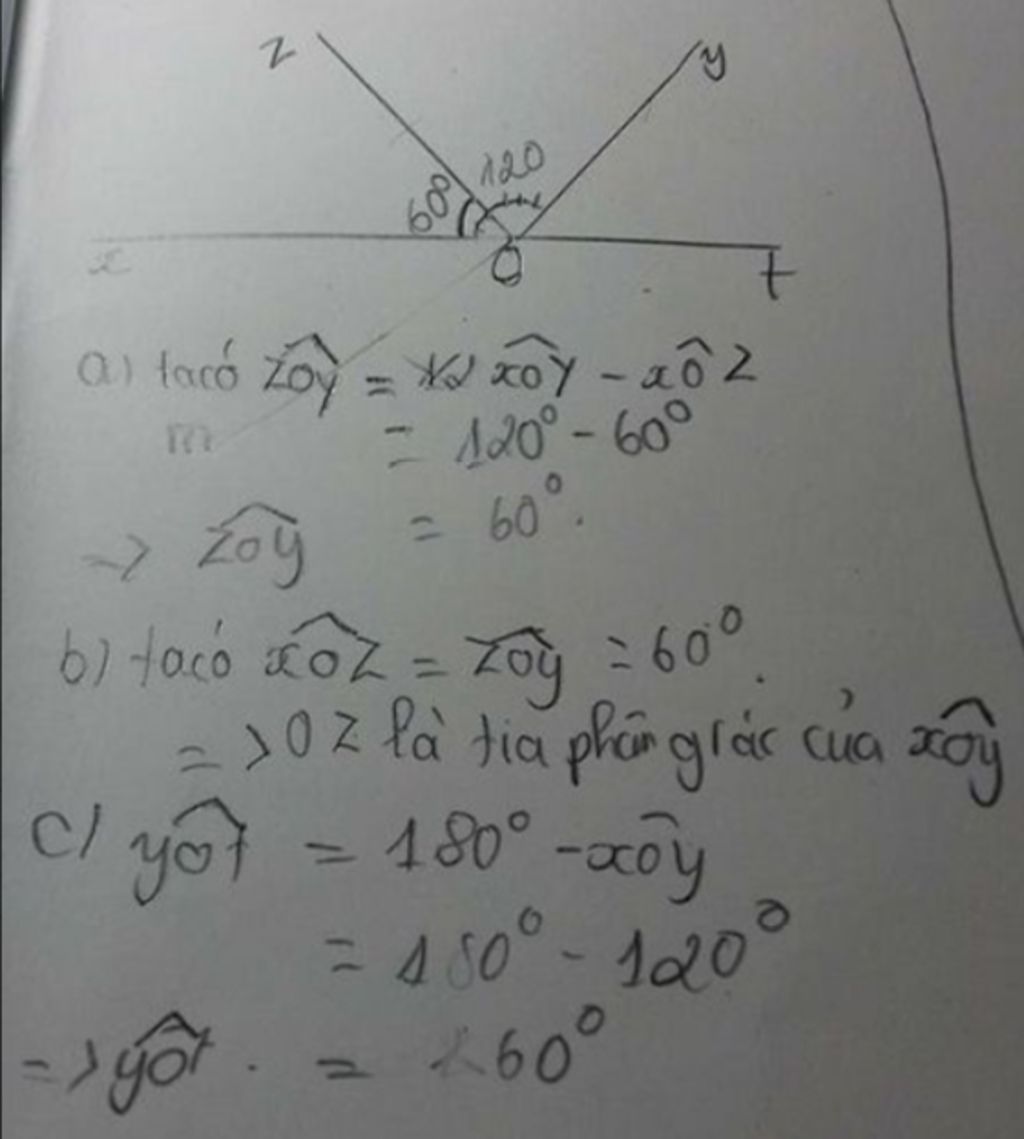 z y
60° 120
x O t
a) ta có zôy = xôy - xôz
m = 120° - 60°
-> zôy = 60°.
b) ta có xôz = zôy = 60°.
=> OZ là tia phân giác của xôy
c/ yôt = 180° - xôy
= 180° - 120°
=> yôt. = 60°